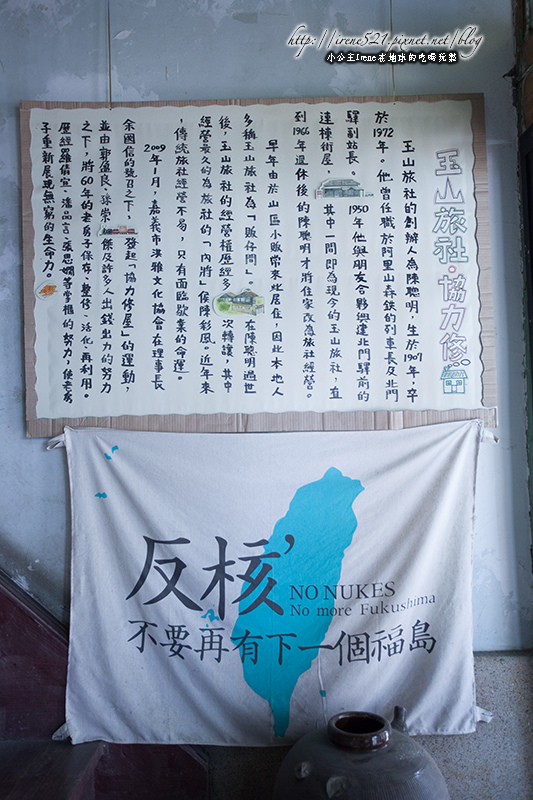 http://irene521.pixnet.net/blog
小公主Irene在地球的吃喝玩樂
玉山旅社·協力修
玉山旅社的創辦人為陳聰明，生於1907年，卒
於1972年。他曾任職於阿里山森鐵的列車長及北門
驛副站長。1950年他與朋友合夥興建北門驛前的
連棟街屋，其中一間即為現今的玉山旅社，直
到1966年退休後的陳聰明才將住家改為旅社經營。
早年由於山區小販帶來此居住，因此本地人
多稱玉山旅社為「販仔間」。在陳聰明過世
後，玉山旅社的經營權歷經多次轉讓，其中
經營最久的為旅社的「內將」侯陳彩鳳。近年來
，傳統旅社經營不易，只有面臨歇業的命運。
2009年1月，嘉義市洪雅文化協會在理事長
余國信的號召之下，發起「協力修屋」的運動，
並由郭盈良、孫崇傑及許多人出錢出力的努力
之下，將60年的老房子保存、整修、活化、再利用。
歷經羅倩宜、潘品言、張思嫺等掌櫃的努力，使老房
子重新展現無窮的生命力。
反核，
NO NUKES
No more Fukushima
不要再有下一個福島